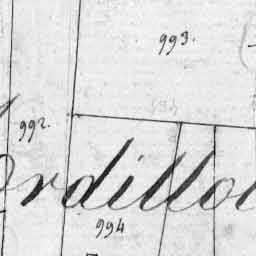 993.
992.
ordillo
994